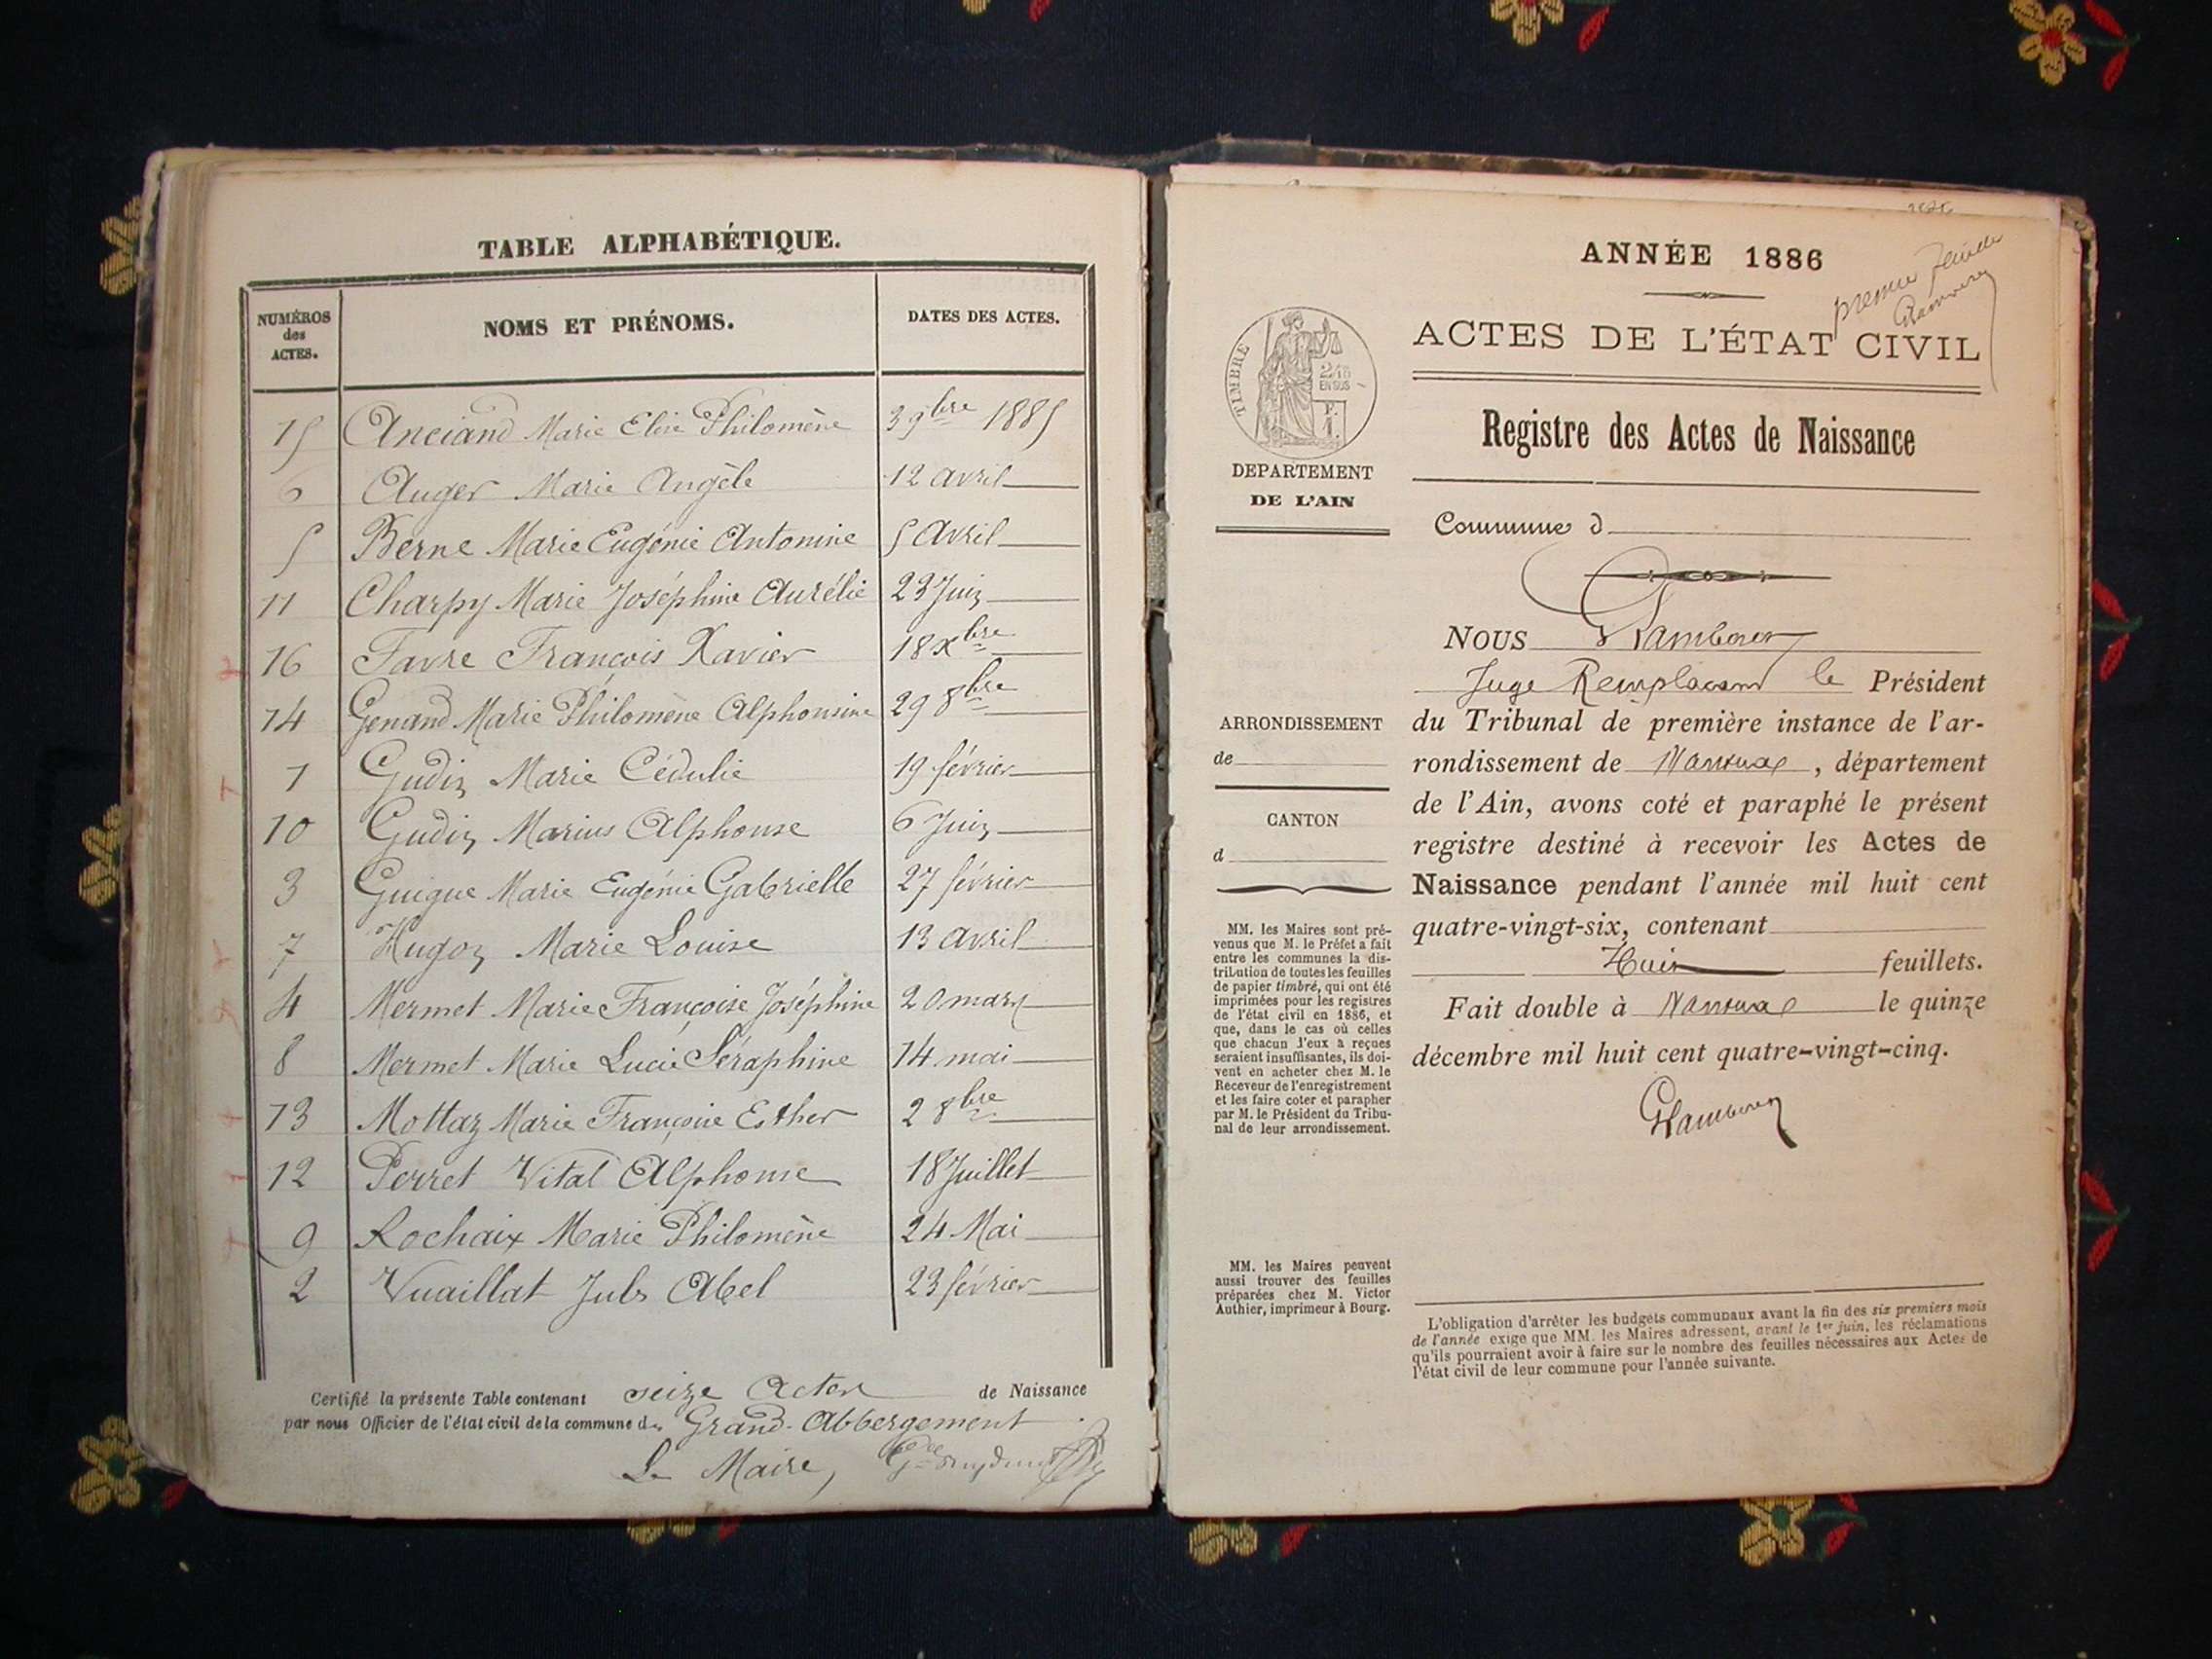 TABLE ALPHABÉTIQUE.
NUMÉROS des ACTES. NOMS ET PRÉNOMS. DATES DES ACTES.
15 Anciand Marie Elise Philomène 3 9bre 1885
6 Auger Marie Angèle 12 avril
5 Berne Marie Eugénie Antonine 5 Avril
11 Charpy Marie Joséphine Aurélie 23 Juin
16 Favre François Xavier 18 Xbre
14 Genand Marie Philomène Alphonsine 29 8bre
1 Gudin Marie Cédulie 19 février
10 Gudin Marius Alphonse 6 Juin
3 Guigue Marie Eugénie Gabrielle 27 février
7 Hugon Marie Louise 13 avril
4 Mermet Marie Françoise Joséphine 20 mars
8 Mermet Marie Lucie Séraphine 14 mai
13 Mottaz Marie Françoise Esther 2 8bre
12 Perret Vital Alphonse 18 Juillet
9 Rochaix Marie Philomène 24 Mai
2 Vuaillat Jules Abel 23 février
Certifié la présente Table contenant seize Actes de Naissance
par nous Officier de l'état civil de la commune du Grand-Abbergement
Le Maire,
ANNÉE 1886
première feuille
ACTES DE L'ÉTAT CIVIL
Registre des Actes de Naissance
TIMBRE
2/10 EN SUS
DEPARTEMENT
DE L'AIN
Commune d
NOUS
Juge Remplaçant le Président
du Tribunal de première instance de l'ar-
rondissement de Nantua, département
de l'Ain, avons coté et paraphé le présent
registre destiné à recevoir les Actes de
Naissance pendant l'année mil huit cent
quatre-vingt-six, contenant
Huit feuillets.
Fait double à Nantua le quinze
décembre mil huit cent quatre-vingt-cinq.
ARRONDISSEMENT
de
CANTON
d
MM. les Maires sont pré-
venus que M. le Préfet a fait
entre les communes la dis-
tribution de toutes les feuilles
de papier timbré, qui ont été
imprimées pour les registres
de l'état civil en 1886, et
que, dans le cas où celles
que chacun d'eux a reçues
seraient insuffisantes, ils doi-
vent en acheter chez M. le
Receveur de l'enregistrement
et les faire coter et parapher
par M. le Président du Tribu-
nal de leur arrondissement.
MM. les Maires peuvent
aussi trouver des feuilles
préparées chez M. Victor
Authier, imprimeur à Bourg.
L'obligation d'arrêter les budgets communaux avant la fin des six premiers mois
de l'année exige que MM. les Maires adressent, avant le 1er juin, les réclamations
qu'ils pourraient avoir à faire sur le nombre des feuilles nécessaires aux Actes de
l'état civil de leur commune pour l'année suivante.